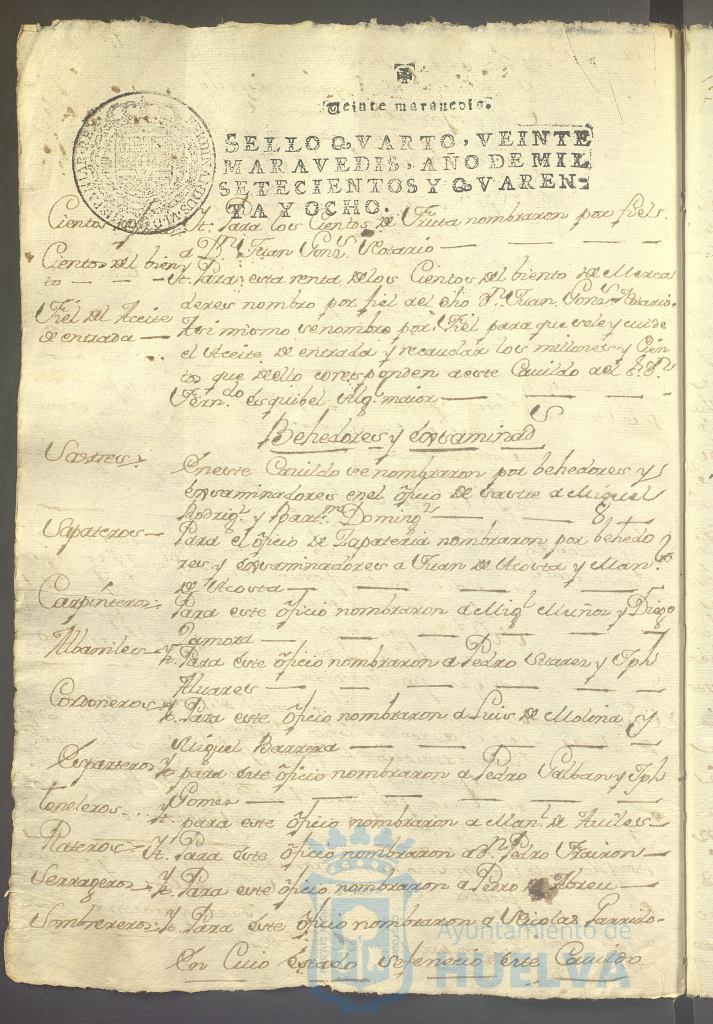 Veinte maravedis.
SELLO QVARTO, VEINTE
MARAVEDIS, AÑO DE MIL
SETECIENTOS Y QVAREN-
TA Y OCHO.
Cientos
Yt. Para los Cientos de Fruta nombraron por fiel
a Dn. Juan Gonz. Rosario
Cientos del bien
to
Yt. Para esta renta de los Cientos del biento de Merca
deres nombro por fiel del dho Dn. Juan Gonz. Rosario.
Fiel del Aceite
de entrada
Asi mismo se nombro por Fiel para que vele y cuide
el Aceite de entrada y recaudar los millones y Cien
tos que dello corresponden a este Cavildo al Sr. Dn.
Fern.do Esquibel Alg.l maior
Behedores y Examinads
Sastres
En este Cavildo se nombraron por behedores y
Examinadores en el ofiçio de sastre a Miguel
Rodrig.z y Bart.me Doming.z
Sapateros
Para el ofiçio de Zapateria nombraron por behedo
res y Examinadores a Juan de Acosta y Man.l
de Acosta
Carpinteros
Para este ofiçio nombraron a Mig.l Muñoz y Diego
Zamora
Albamiles
Yt. Para este ofiçio nombraron a Pedro Suarez y Jph
Alvares
Cordoneros
Yt. Para este ofiçio nombraron a Luis de Molina y
Miguel Barrera
Esparteros
Yt. para este ofiçio nombraron a Pedro Galban y Jph
Gomes
toneleros
Yt. para este ofiçio nombraron a Man.l de Aviles
Plateros
Yt. Para este ofiçio nombraron a Dn. Pedro
Serrageros
Yt. Para este ofiçio nombraron a Pedro de Abreu
Sombrereros
Yt. Para este ofiçio nombraron a Nicolas Garrido
En Cuio estado se feneçio este Cavildo
Ayuntamiento de
HUELVA